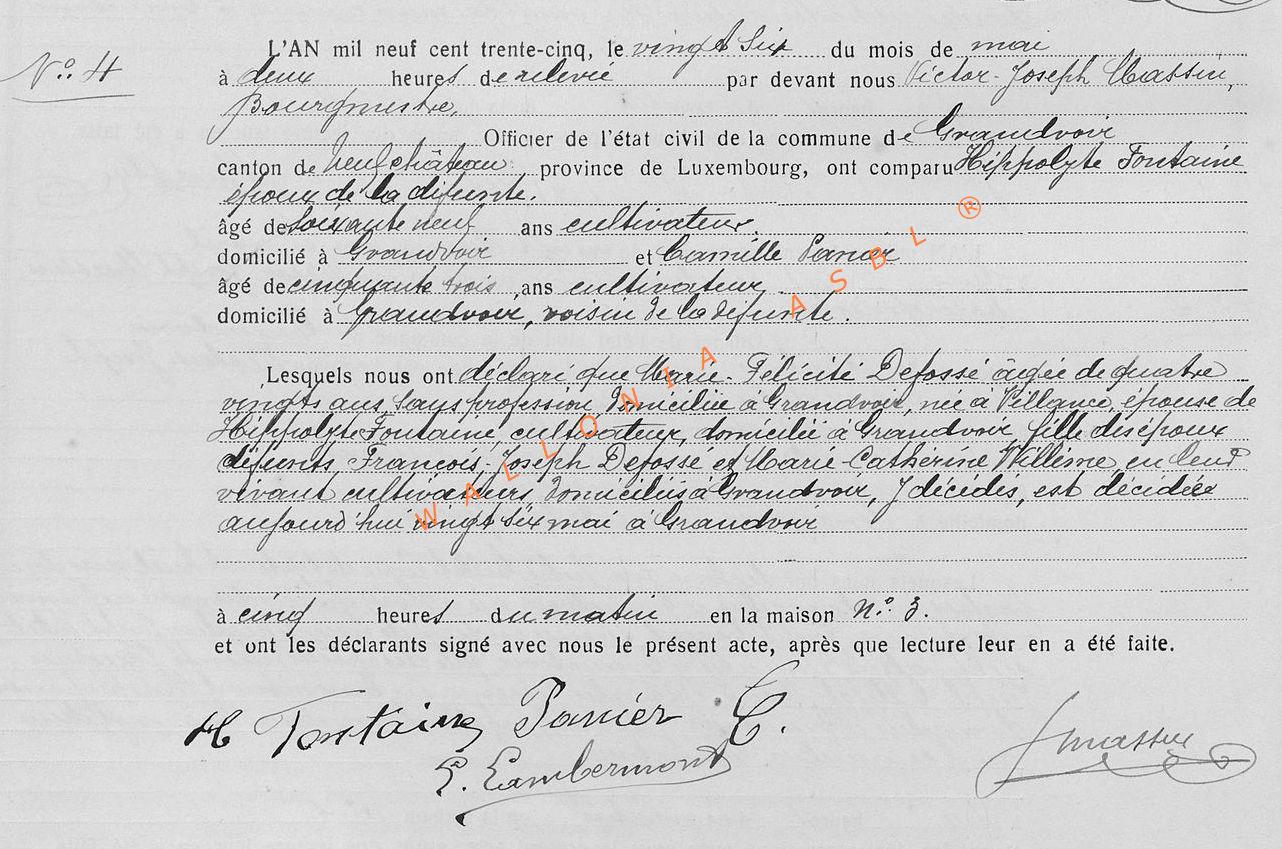 N.o 4
L'AN mil neuf cent trente-cinq, le vingt six du mois de mai
à deux heures de relevée par devant nous Victor-Joseph Massin,
Bourgmestre,
Officier de l'état civil de la commune de Grandvoir
canton de Neufchâteau province de Luxembourg, ont comparu Hippolyte Fontaine
époux de la défunte.
âgé de soixante neuf ans cultivateur
domicilié à Grandvoir et Camille Panier
âgé de cinquante trois ans cultivateur
domicilié à Grandvoir, voisin de la défunte.
Lesquels nous ont déclaré que Marie-Félicité Defossé âgée de quatre
vingts ans, sans profession, domiciliée à Grandvoir, née à Villance, épouse de
Hippolyte Fontaine, cultivateur, domicilié à Grandvoir, fille des époux
défunts, François-Joseph Defossé et Marie-Catherine Willème, en leur
vivant cultivateurs, domiciliés à Grandvoir, y décédés, est décédée
aujourd'hui vingt six mai à Grandvoir
à cinq heures du matin en la maison N.o 3.
et ont les déclarants signé avec nous le présent acte, après que lecture leur en a été faite.
H Fontaine Panier C.
E. Lambermont
J massin
WALLONIA ASBL ®